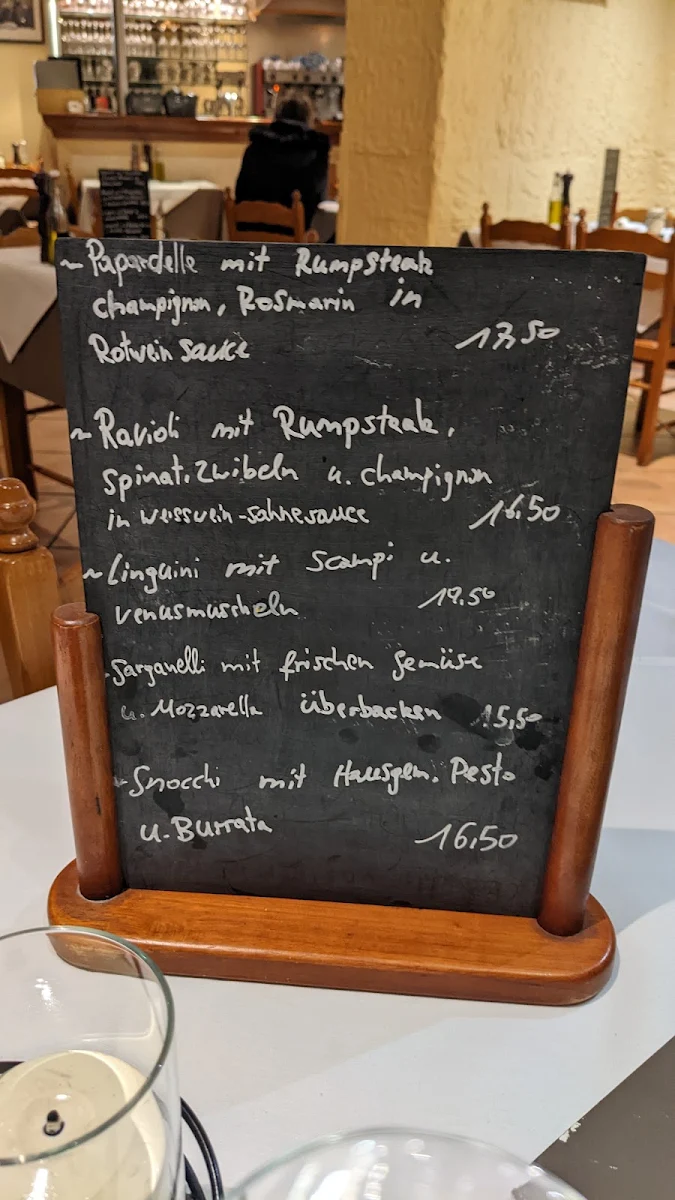 ~ Papardelle mit Rumpsteak
champignon, Rosmarin in
Rotwein sauce 17,50
~ Ravioli mit Rumpsteak,
Spinat, Zwibeln u. champignon
in weisswein-sahnesauce 16,50
~ Linguini mit Scampi u.
venusmuscheln 19,50
Garganelli mit frischen Gemüse
u. Mozzarella überbacken 15,50
Gnocchi mit Hausgem. Pesto
u. Burrata 16,50